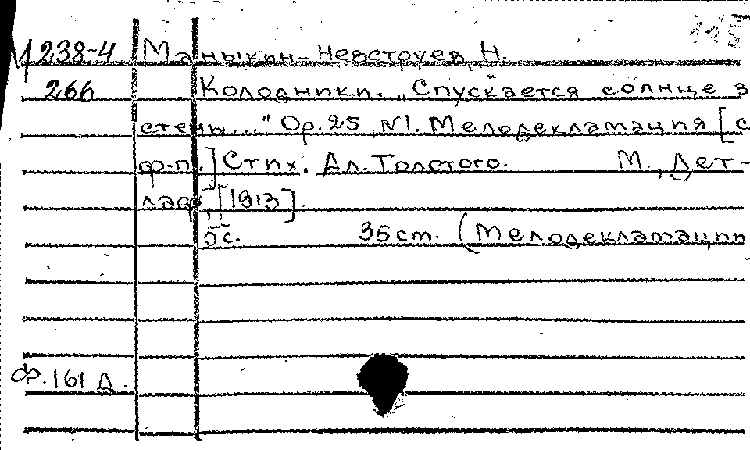 115
М 238-4 Маныкин-Невструев, Н.
266 Колодники. „Спускается солнце з
степи..." Ор. 25 N1. Мелодекламация [с
ф-п.] Стих. Ал. Толстого. М., Дет-
лаф, [1913].
5 с. 35 cm. (Мелодекламации
Ф. 161 Д.